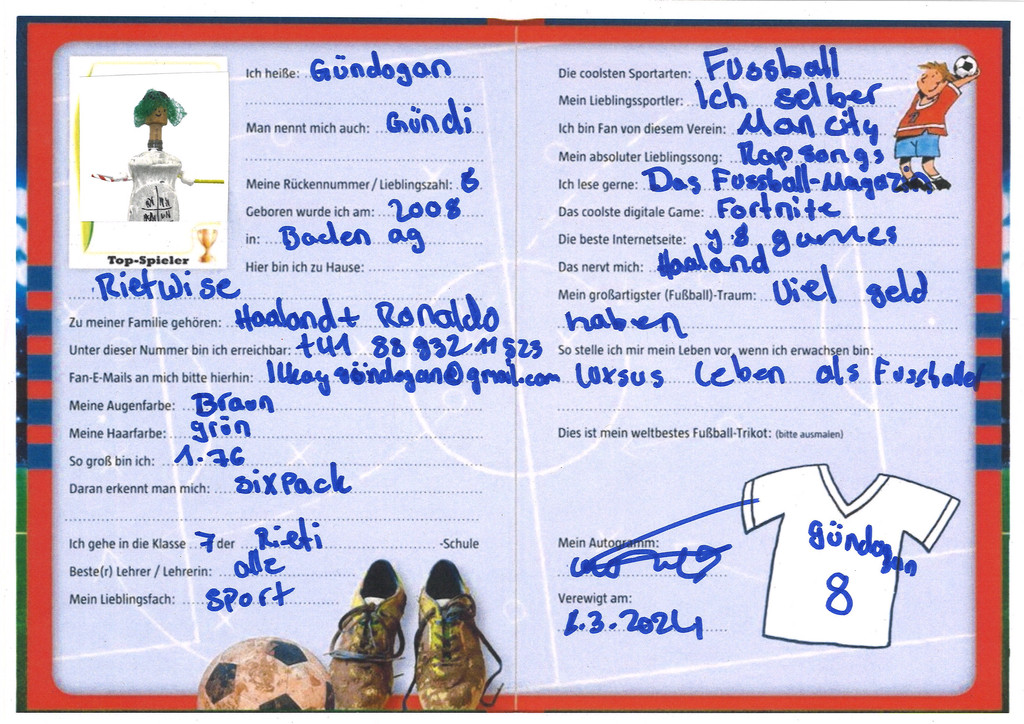 Top-Spieler
Ich heiße: Gündogan
Man nennt mich auch: Gündi
Meine Rückennummer / Lieblingszahl: 8
Geboren wurde ich am: 2008
in: Baden ag
Hier bin ich zu Hause:
Rietwise
Zu meiner Familie gehören: Haaland + Ronaldo
Unter dieser Nummer bin ich erreichbar: +41 88 932 11 523
Fan-E-Mails an mich bitte hierhin: Ilkay gündogan@gmail.com
Meine Augenfarbe: Braun
Meine Haarfarbe: grün
So groß bin ich: 1.76
Daran erkennt man mich: sixpack
Ich gehe in die Klasse 7 der Rieti -Schule
Beste(r) Lehrer / Lehrerin: alle
Mein Lieblingsfach: sport
Die coolsten Sportarten: Fussball
Mein Lieblingssportler: Ich selber
Ich bin Fan von diesem Verein: Man city
Mein absoluter Lieblingssong: Rap songs
Ich lese gerne: Das Fussball-Magazin
Das coolste digitale Game: Fortnite
Die beste Internetseite: y8 games
Das nervt mich: Haaland
Mein großartigster (Fußball)-Traum: viel geld
haben
So stelle ich mir mein Leben vor, wenn ich erwachsen bin:
Luxsus Leben als Fussballer
Dies ist mein weltbestes Fußball-Trikot: (bitte ausmalen)
Gündogan
8
Mein Autogramm:
Verewigt am:
1.3.2024